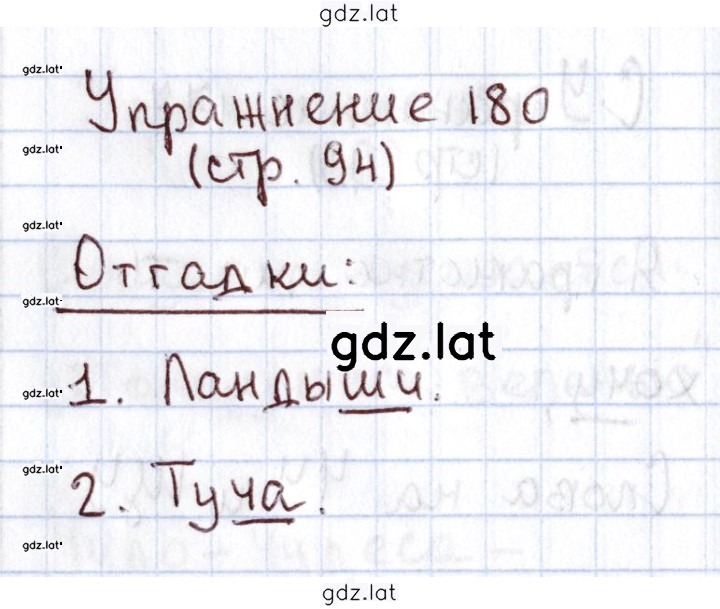 gdz.lat
gdz.lat
Упражнение 180
gdz.lat
(стр. 94)
gdz.lat
Отгадки:
gdz.lat
gdz.lat
gdz.lat
1. Ландыши.
gdz.lat
2. Туча.
gdz.lat
gdz.lat